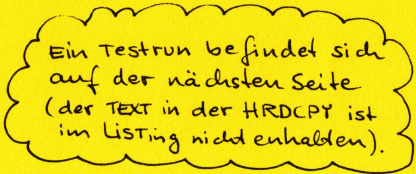 Ein Testrun befindet sich
auf der nächsten Seite
(der TEXT in der HRDCPY ist
im Listing nicht enhalten).